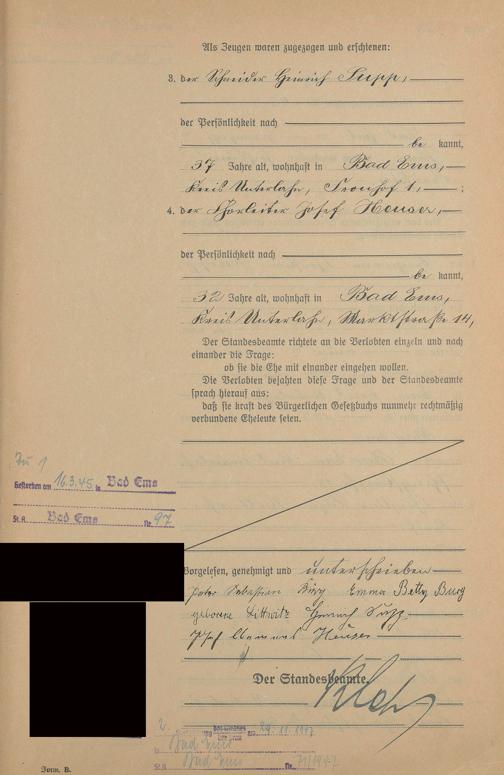 Als Zeugen waren zugezogen und erschienen:
3. der Schneider Heinrich Supp,
der Persönlichkeit nach
be kannt,
37 Jahre alt, wohnhaft in Bad Ems,
Kreis Unterlahn, Fronhof 1, ;
4. der Chorleiter Josef Heuser,
der Persönlichkeit nach
be kannt,
32 Jahre alt, wohnhaft in Bad Ems,
Kreis Unterlahn, Marktstraße 14,
Der Standesbeamte richtete an die Verlobten einzeln und nach
einander die Frage:
ob sie die Ehe mit einander eingehen wollen.
Die Verlobten bejahten diese Frage und der Standesbeamte
sprach hierauf aus:
daß sie kraft des Bürgerlichen Gesetzbuchs nunmehr rechtmäßig
verbundene Eheleute seien.
Zu 1
Gestorben am 16.3.45 in Bad Ems
St.A. Bad Ems Nr. 97
Vorgelesen, genehmigt und unterschrieben
Peter Sebastian Burg Emma Betty Burg
geborene Heinrich Supp
Josef Heuser
Der Standesbeamte.
2.
Bad Ems
St.A. Bad Ems Nr.
Form. B.